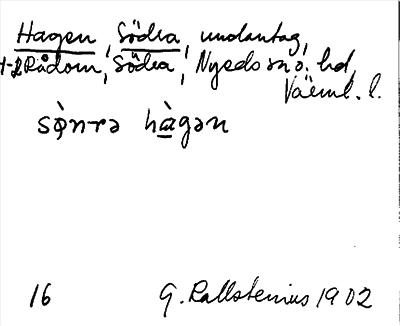 Hagen, Södra, undantag,
t. Rådom, Södra, Nyeds sn. hd,
Värml. l.
sø̀nrə hàgən
16 G. Kallstenius 1902